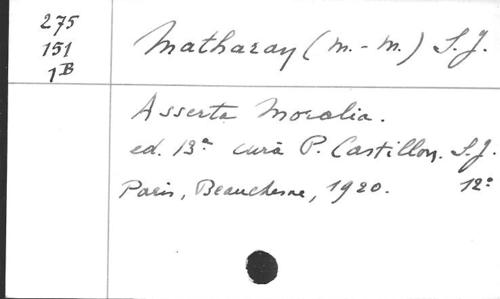 275
151
1B
Matharay (M.-M.) S.J.
Asserta Moralia.
ed. 13ª curâ P. Castillon. S.J.
Paris, Beauchesne, 1920. 12º